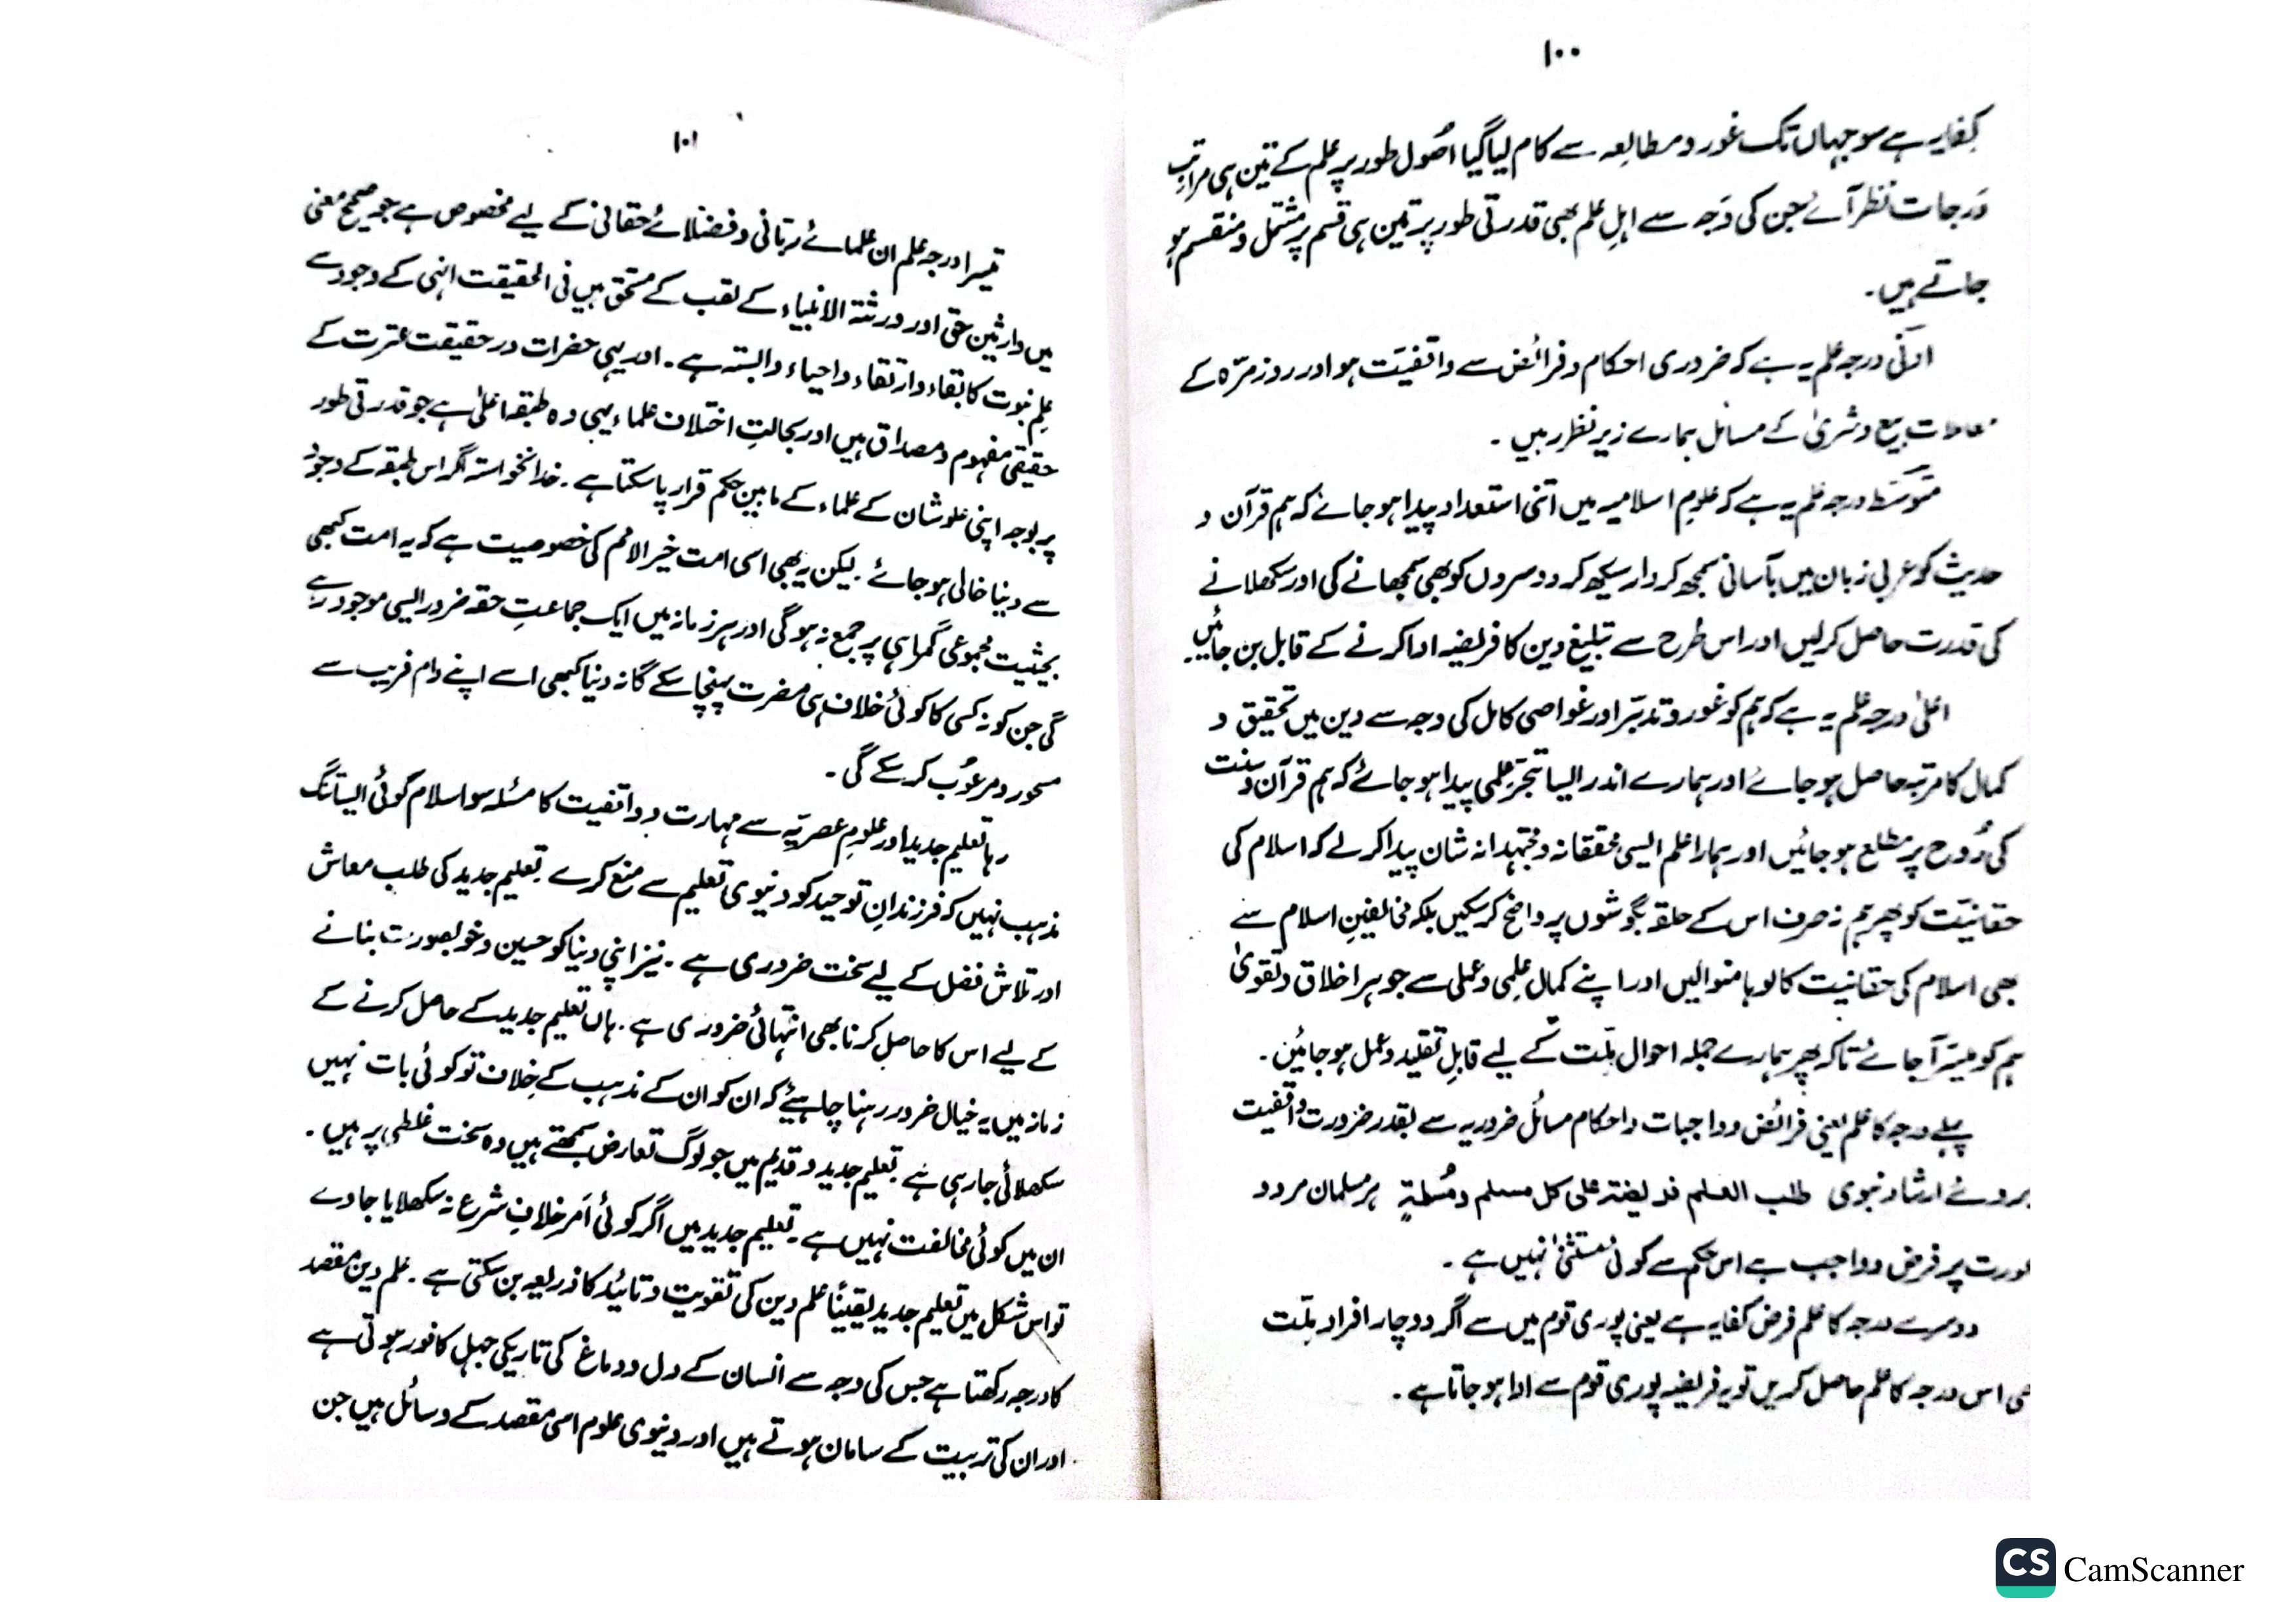 ۱۰۰
کفایہ ہے سو جہاں تک غور و مطالعہ سے کام لیا گیا اصُول طور پر علم کے تین ہی مراتب
دَرجات نظر آئے جن کی وَجہ سے اہلِ علم بھی قدرتی طور پر تین ہی قسم پر مشتمل و منقسم ہو
جاتے ہیں۔
ادنیٰ درجہ علم یہ ہے کہ ضروری احکام و فرائض سے واقفیت ہو اور روز مرّہ کے
معاملات بیع و شریٰ کے مسائل ہمارے زیر نظر رہیں۔
متوسَط درجہ علم یہ ہے کہ علومِ اسلامیہ میں اتنی استعداد پیدا ہو جائے کہ ہم قرآن و
حدیث کو عربی زبان میں بآسانی سمجھ کر دار سیکھ کر دوسروں کو بھی سمجھانے کی اور سکھلانے
کی قدرت حاصل کرلیں اور اس طرح سے تبلیغ دین کا فریضہ ادا کرنے کے قابل بن جائیں۔
اعلیٰ درجہ علم یہ ہے کہ ہم کو غور و تدبّر اور غواصی کامل کی وجہ سے دین میں تحقیق و
کمال کا مرتبہ حاصل ہو جائے اور ہمارے اندر ایسا تبحّر علمی پیدا ہو جائے کہ ہم قرآن و سنت
کی رُوح پر مطلع ہو جائیں اور ہمارا علم ایسی محققانہ و مجتہدانہ شان پیدا کر لے کہ اسلام کی
حقانیّت کو پھر ہم نہ صرف اس کے حلقہ بگوشوں پر واضح کرسکیں بلکہ مخالفینِ اسلام سے
بھی اسلام کی حقانیت کا لوہا منوالیں اور اپنے کمال علمی و عملی سے جوہر اخلاق و تقویٰ
ہم کو میسّر آ جائے تاکہ پھر ہمارے جملہ احوال ملّت کے لیے قابلِ تقلید و عمل ہو جائیں۔
پہلے درجہ کا علم یعنی فرائض و واجبات و احکام مسائل ضروریہ سے بقدر ضرورت واقفیت
بروئے ارشاد نبوی طلب العلم فریضۃ علی کل مسلم و مُسلمۃٍ ہر مسلمان مرد و
عورت پر فرض و واجب ہے اس حکم سے کوئی مستثنیٰ نہیں ہے۔
دوسرے درجہ کا علم فرض کفایہ ہے یعنی پوری قوم میں سے اگر دو چار افراد ملّت
بھی اس درجہ کا علم حاصل کریں تو یہ فریضہ پوری قوم سے ادا ہو جاتا ہے۔
۱۰۱
تیسرا درجہ علم ان علمائے ربّانی و فضلائے حقانی کے لیے مخصوص ہے جو صحیح معنی
میں وارثین حق اور ورثۃ الانبیاء کے لقب کے مستحق ہیں فی الحقیقت انہی کے وجود سے
علمِ نبوت کا بقاء و ارتقاء و احیاء وابستہ ہے۔ اور یہی حضرات در حقیقت عترت کے
حقیقی مفہوم و مصداق ہیں اور بحالتِ اختلاف علماء یہی وہ طبقہ اعلیٰ ہے جو قدرتی طور
پر بوجہ اپنی علو شان کے علماء کے مابین حکم قرار پا سکتا ہے۔ خدانخواستہ اگر اس طبقہ کے وجود
سے دنیا خالی ہو جائے۔ لیکن یہ بھی اسی امت خیر الامم کی خصوصیت ہے کہ یہ امت کبھی
بحیثیت مجموعی گمراہی پر جمع نہ ہوگی اور ہر زمانہ میں ایک جماعتِ حقہ ضرور ایسی موجود رہے
گی جن کو نہ کسی کا کوئی خلاف ہی مضرت پہنچا سکے گا نہ دنیا کبھی اسے اپنے دام فریب سے
مسحور و مرعُوب کر سکے گی۔
رہا تعلیم جدید اور علومِ عصریّہ سے مہارت و واقفیت کا مسئلہ سو اسلام کوئی ایسا تنگ
مذہب نہیں کہ فرزندانِ توحید کو دنیوی تعلیم سے منع کرے۔ تعلیم جدید کی طلب معاش
اور تلاش فضل کے لیے سخت ضروری ہے۔ نیز اپنی دنیا کو حسین و خوبصورت بنانے
کے لیے اس کا حاصل کرنا بھی انتہائی ضروری ہے۔ ہاں تعلیم جدید کے حاصل کرنے کے
زمانہ میں یہ خیال ضرور رہنا چاہیئے کہ ان کو ان کے مذہب کے خلاف تو کوئی بات نہیں
سکھلائی جارہی ہے۔ تعلیم جدید و قدیم میں جو لوگ تعارض سمجھتے ہیں وہ سخت غلطی پر ہیں۔
ان میں کوئی مخالفت نہیں ہے۔ تعلیم جدید میں اگر کوئی اَمر خلافِ شرع نہ سکھلایا جاوے
تو اس شکل میں تعلیم جدید یقیناً علم دین کی تقویت و تائید کا ذریعہ بن سکتی ہے۔ علم دین مقصد
کا درجہ رکھتا ہے جس کی وجہ سے انسان کے دل و دماغ کی تاریکی جہل کافور ہوتی ہے
اور ان کی تربیت کے سامان ہوتے ہیں اور دنیوی علوم اسی مقصد کے وسائل ہیں جن
CS CamScanner